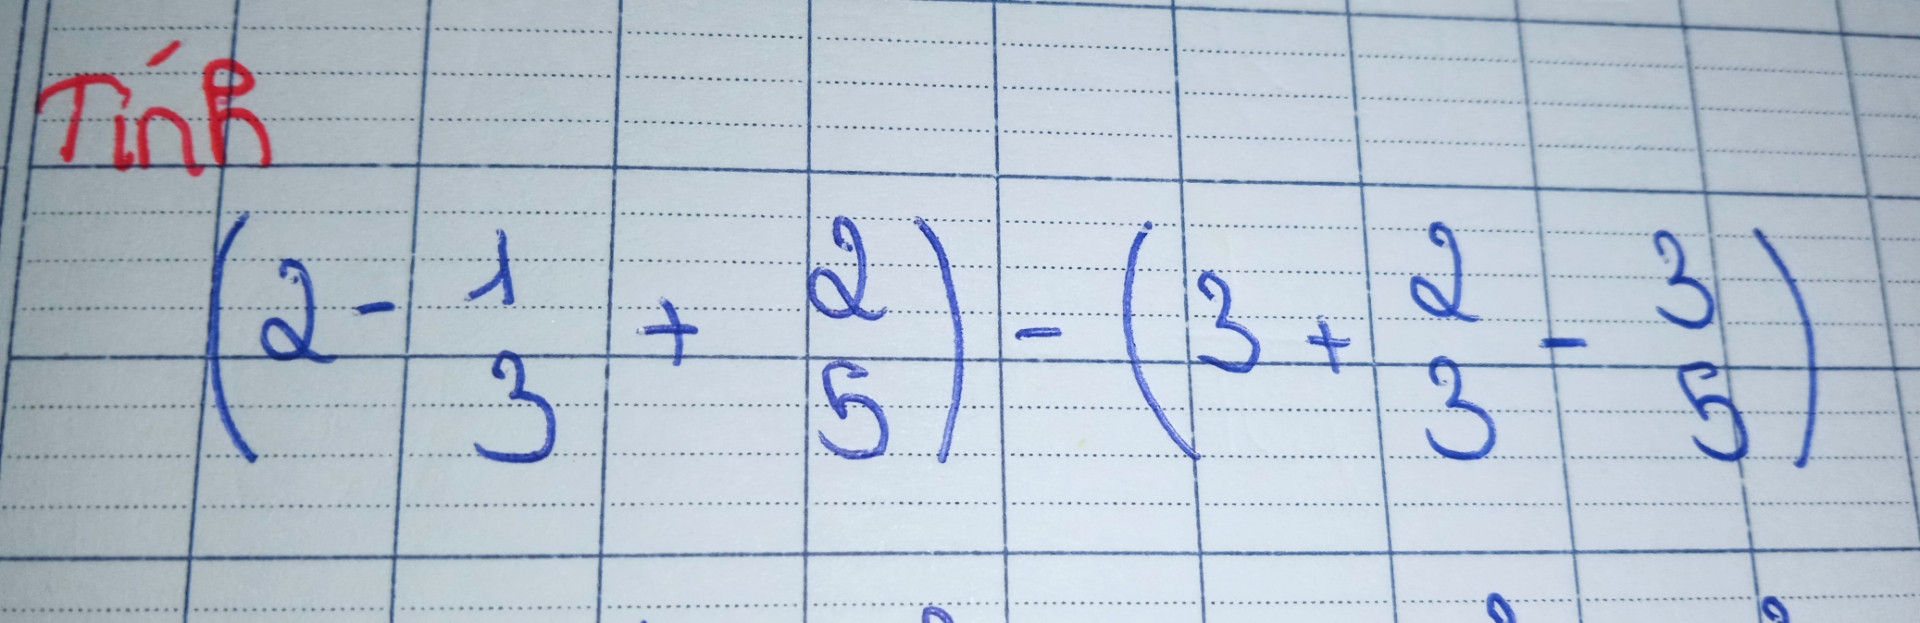 Tính
(2 - 1/3 + 2/5) - (3 + 2/3 - 3/5)